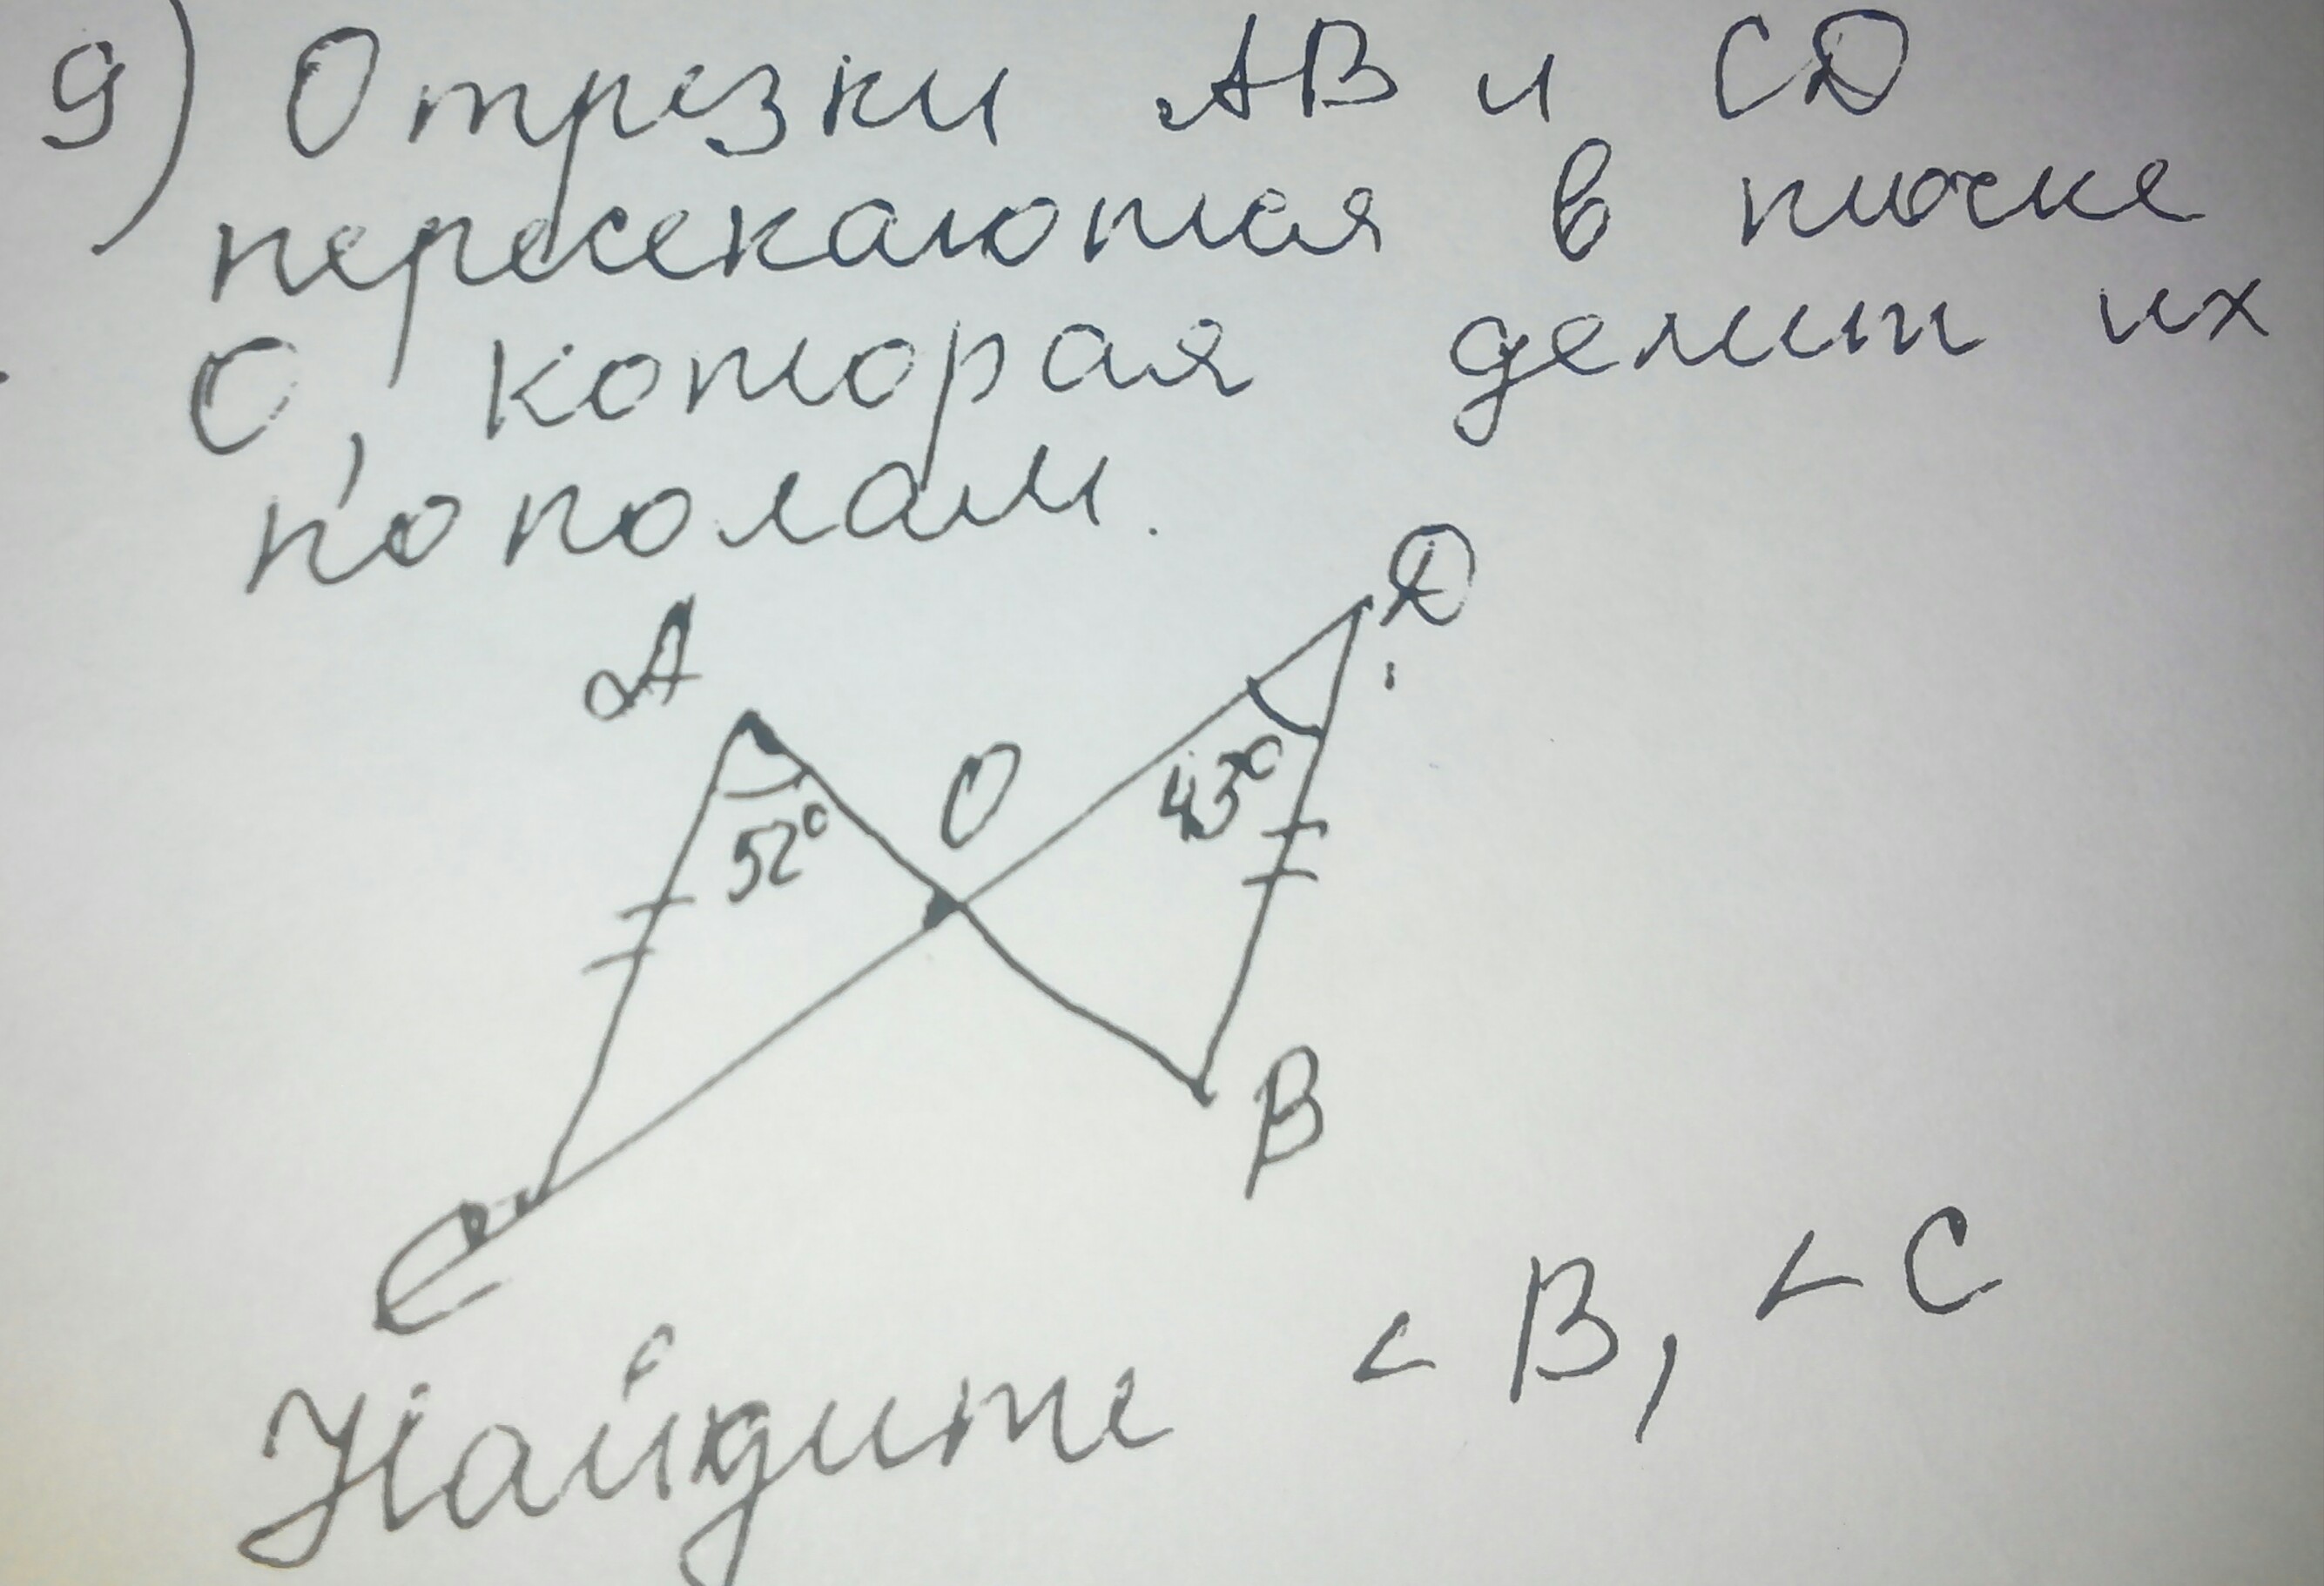 9) Отрезки AB и CD
пересекаются в точке
O, которая делит их
пополам.
D
A
O
43°
52°
B
C
Найдите < B, < C